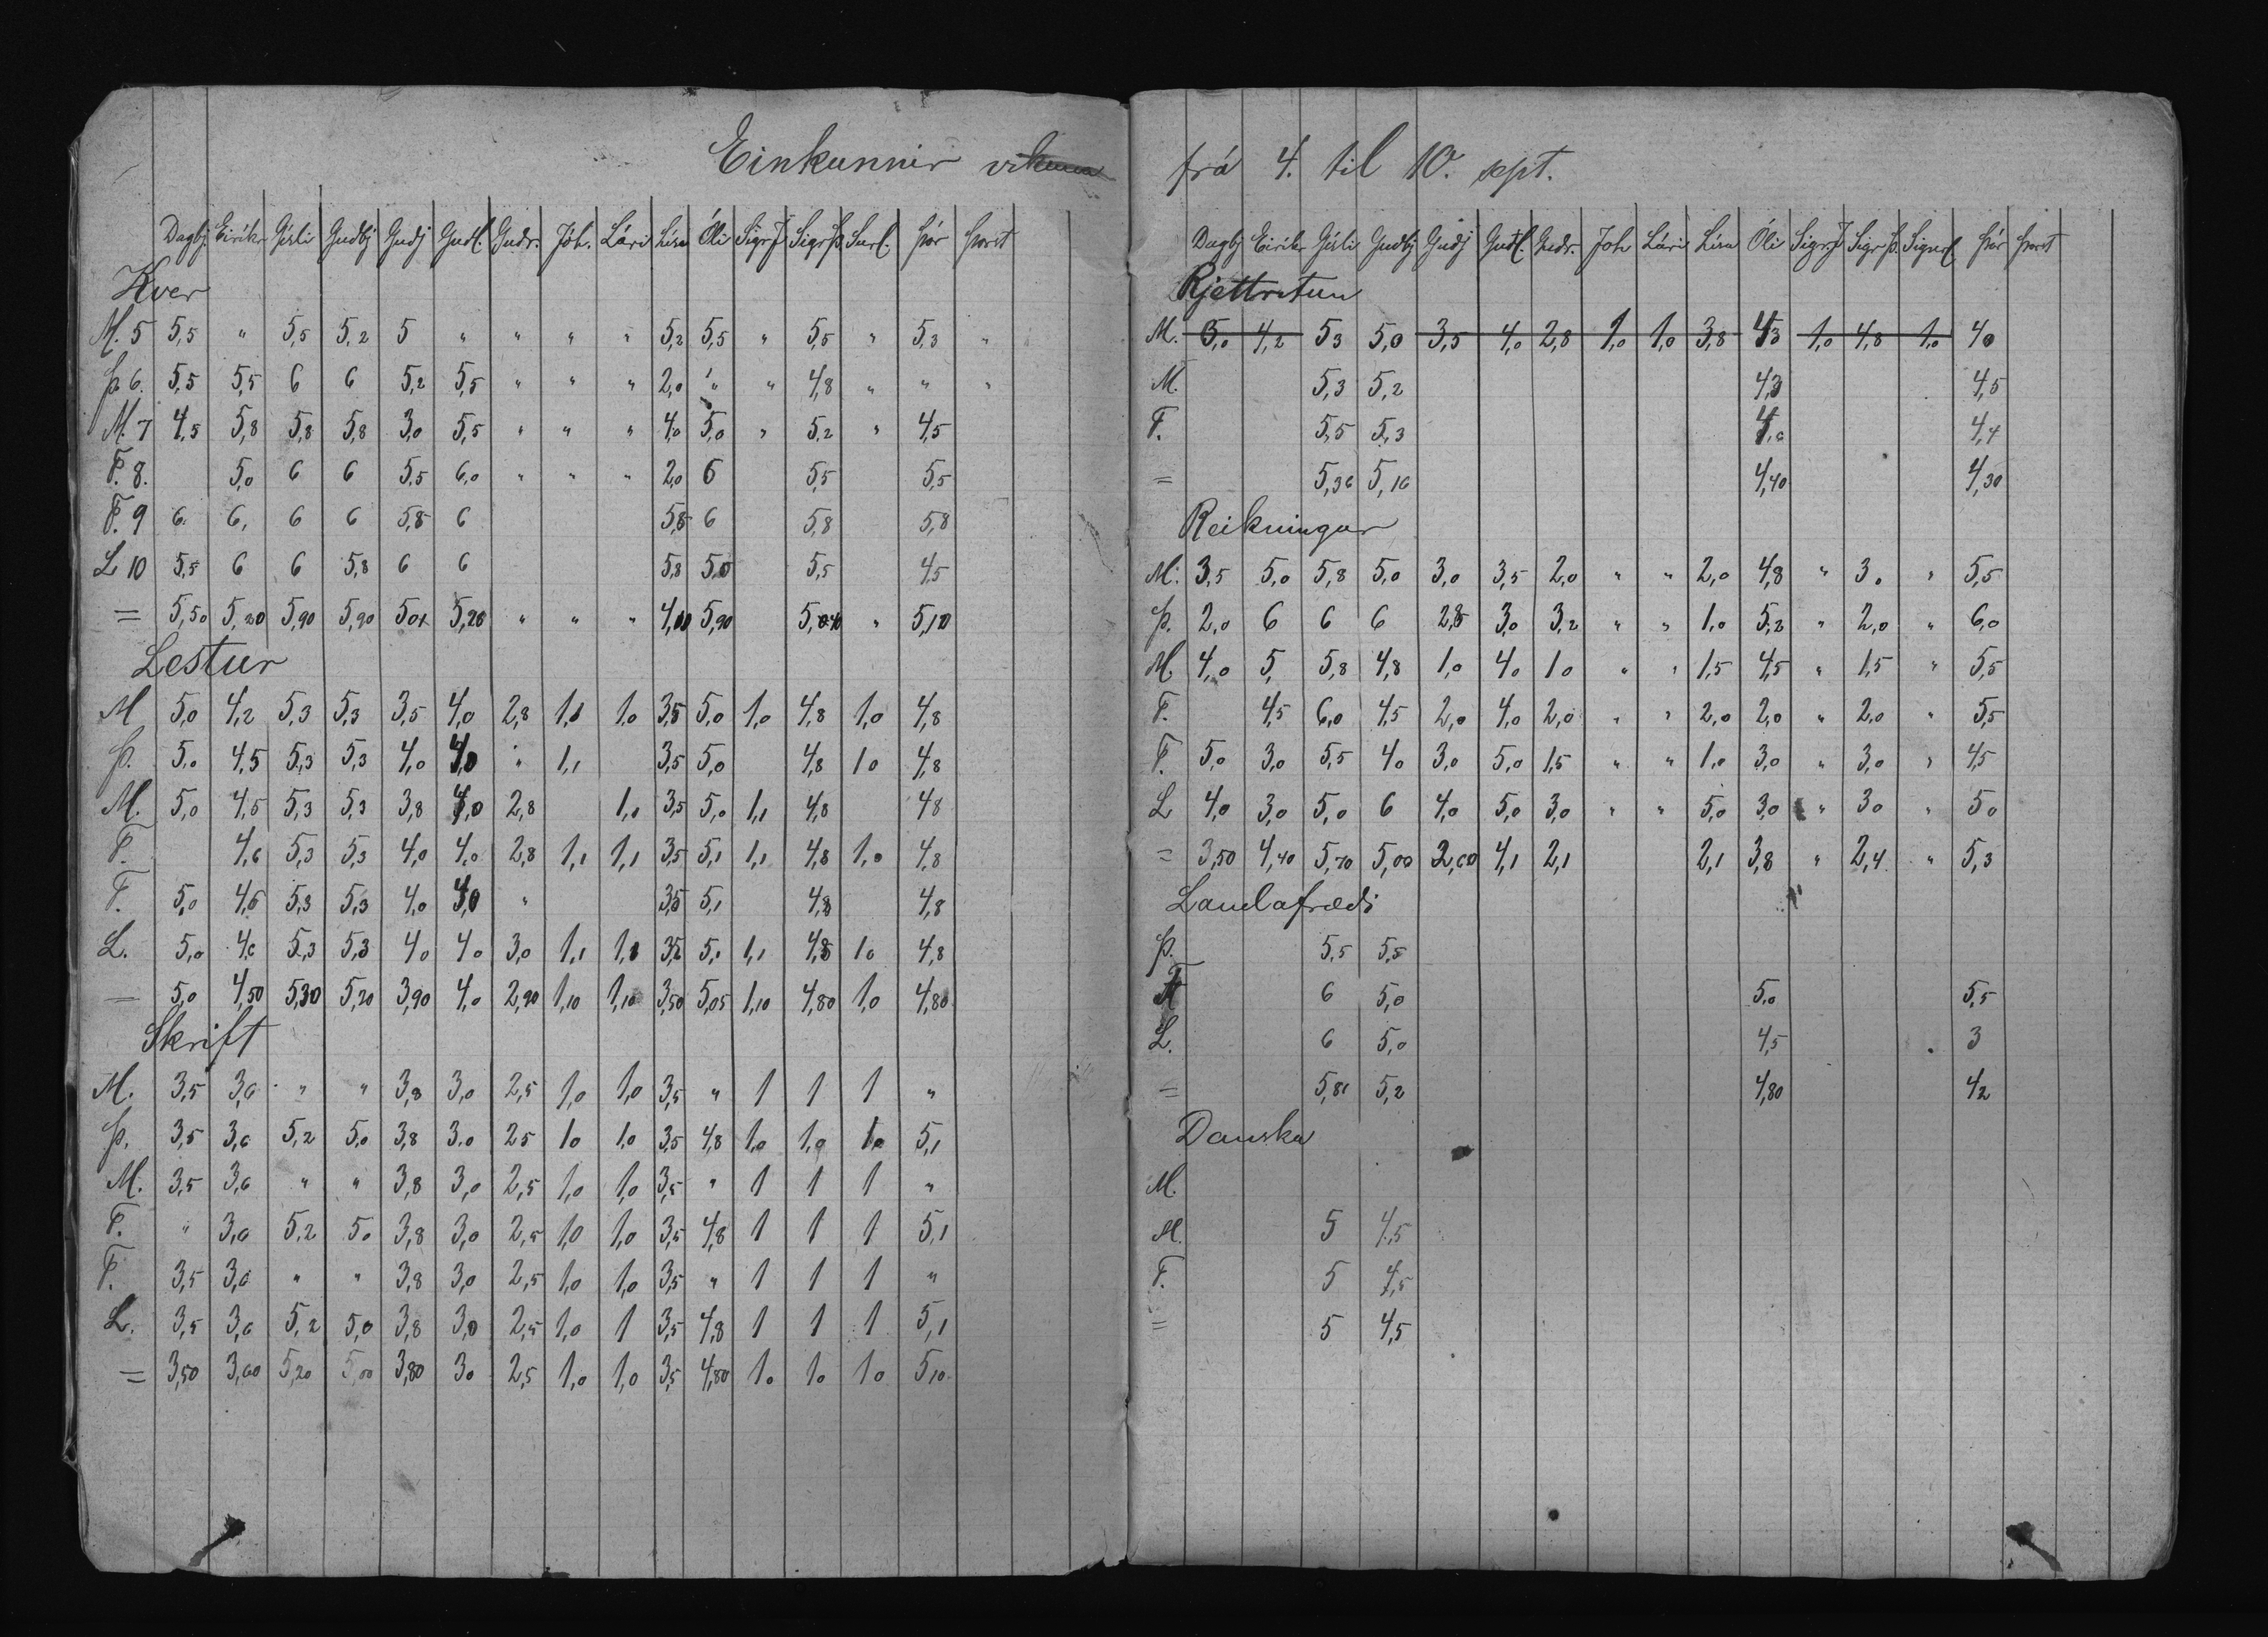 Einkunnir vikuna
Dagbj. Eirikr Gísli Gudbj Gudj Gudl. Gudr. Jóh. Lári Lísa Óli Sigr J Sigr Þ. Þór Þorst
Kver
M. 5 5,5 " 5,5 5,2 5 " " " " 5,2 5,5 " 5,5 " 5,3 "
Þ. 6. 5,5 5,5 6 6 5,2 5,5 " " " 2,0 " " 4,8 " " "
M. 7 4,5 5,8 5,8 5,8 3,0 5,5 " " " 4,0 5,0 " 5,2 " 4,5
F. 8. 5,0 6 6 5,5 6,0 " " " 2,0 6 5,5 5,5
F. 9 6 6, 6 6 5,8 6 5,8 6 5,8 5,8
L 10 5,5 6 6 5,8 6 6 5,8 5,0 5,5 4,5
= 5,50 5,20 5,90 5,90 5,01 5,20 " " " 5,90 " 5,10
Lestur
M 5,0 4,2 5,3 5,3 3,5 4,0 2,8 1,1 1,0 3,5 5,0 1,0 4,8 1,0 4,8
Þ. 5,0 4,5 5,3 5,3 4,0 4,0 " 1,1 3,5 5,0 4,8 1 0 4,8
M. 5,0 4,5 5,3 5,3 3,8 4,0 2,8 1,1 3,5 5,0 1,1 4,8 4 8
F. 4,6 5,3 5,3 4,0 4,0 2,8 1,1 1,1 3,5 5,1 1,1 4,8 1,0 4,8
F. 5,0 4,6 5,3 5,3 4,0 4,0 " 3,5 5,1 4,8 4,8
L. 5,0 4,6 5,3 5,3 4,0 4,0 3,0 1,1 1,1 3,5 5,1 1,1 4,8 1 0 4,8
= 5,0 4,50 5,30 5,20 3,90 4,0 2,90 1,10 1,10 3,50 5,05 1,10 4,80 1,0 4,80
Skrift
M. 3,5 3,6 " " 3,8 3,0 2,5 1,0 1,0 3,5 " 1 1 1 "
Þ. 3,5 3,6 5,2 5,0 3,8 3,0 2 5 1 0 1,0 3,5 4,8 1,0 1,0 1,0 5,1
M. 3,5 3,6 " " 3,8 3,0 2,5 1,0 1,0 3,5 " 1 1 1 "
F. " 3,6 5,2 5,0 3,8 3,0 2,5 1,0 1,0 3,5 4,8 1 1 1 5,1
F. 3,5 3,6 " " 3,8 3,0 2,5 1,0 1,0 3,5 " 1 1 1 "
L. 3,5 3,6 5,2 5,0 3,8 3,0 2,5 1,0 1 3,5 4,8 1 1 1 5,1
= 3,50 3,60 5,20 5,00 3,80 3 0 2,5 1,0 1,0 3,5 4,80 1 0 1 0 1 0 5,10
frá 4. til 10. sept.
Dagbj Eirikr Gísli Gudbj Gudj Gudl. Gudr. Joh Lári Lísa Óli Sigr. J Sigr Þ. Þór Þorst
Rjettritun
M. 5,0 4,2 5 3 5,0 3,5 4,0 2,8 1,0 1,0 3,8 4,3 1,0 4,8 1,0 4 0
M. 5,3 5,2 4,3 4,5
F. 5,5 5,3 4,6 4,4
= 5,36 5,16 4,40 4,30
Reikningur
M. 3,5 5,0 5,8 5,0 3,0 3,5 2,0 " " 2,0 4,8 " 3. " 5,5
Þ. 2,0 6 6 6 2,8 3,0 3,2 " " 1,0 5,2 " 2,0 " 6,0
M 4,0 5, 5,8 4,8 1,0 4,0 1 0 " " 1,5 4,5 " 1,5 " 5,5
F. 4,5 6,0 4,5 2,0 4,0 2,0 " " 2,0 2,0 " 2,0 " 5,5
F. 5,0 3,0 5,5 4,0 3,0 5,0 1,5 " " 1,0 3,0 " 3,0 " 4,5
L 4,0 3,0 5,0 6 4,0 5,0 3,0 " " 5,0 3,0 " 3 0 " 5,0
= 3,50 4,40 5,70 5,00 2,60 4,1 2,1 2,1 3,8 " 2,4 " 5,3
Landafrædi
Þ. 5,5 5,5
F 6 5,0 5,0 5,5
L. 6 5,0 4,5 3
= 5,81 5,2 4,80 4,2
Danska
M.
M. 5 4,5
F. 5 4,5
= 5 4,5